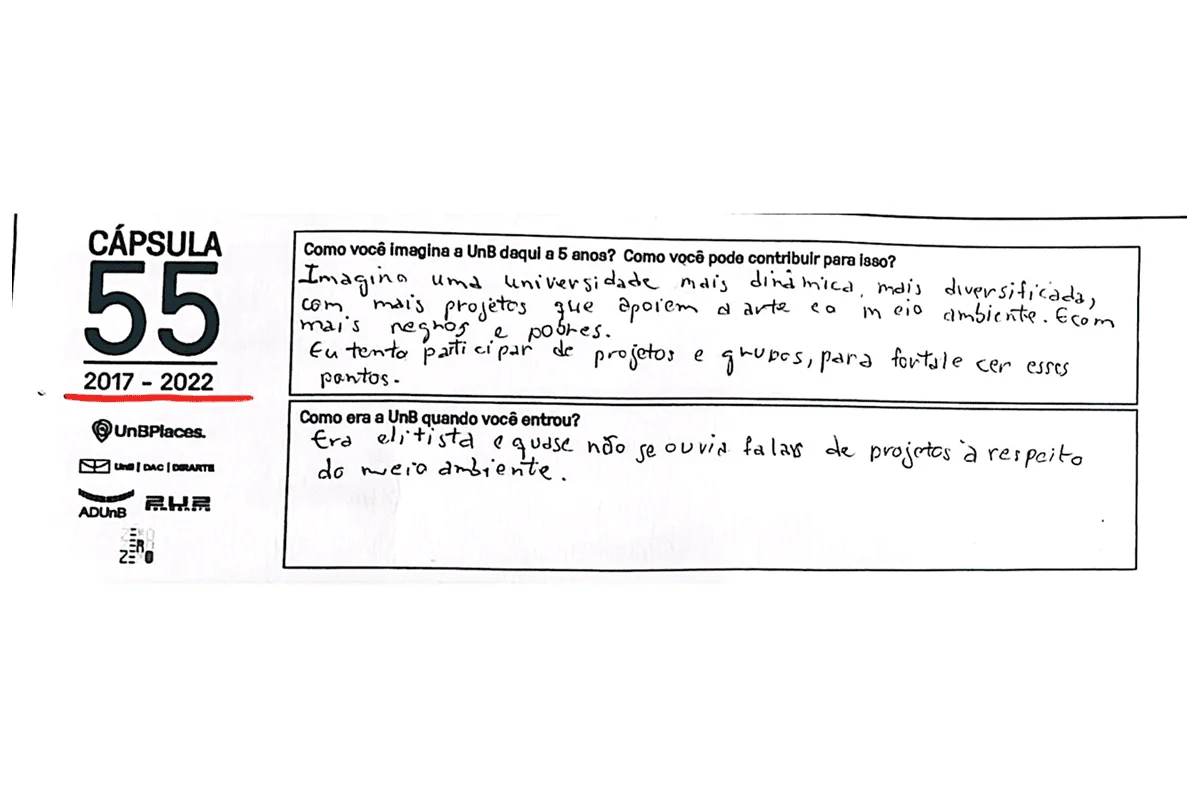 CÁPSULA
55
2017 - 2022
UnBPlaces.
UnB | DAC | DIRARTE
ADUnB
ZERO
Como você imagina a UnB daqui a 5 anos? Como você pode contribuir para isso?
Imagino uma universidade mais dinâmica, mais diversificada,
com mais projetos que apoiem a arte e o meio ambiente. E com
mais negros e pobres.
Eu tento participar de projetos e grupos, para fortale cer esses
pontos.
Como era a UnB quando você entrou?
Era elitista e quase não se ouvia falar de projetos à respeito
do meio ambiente.